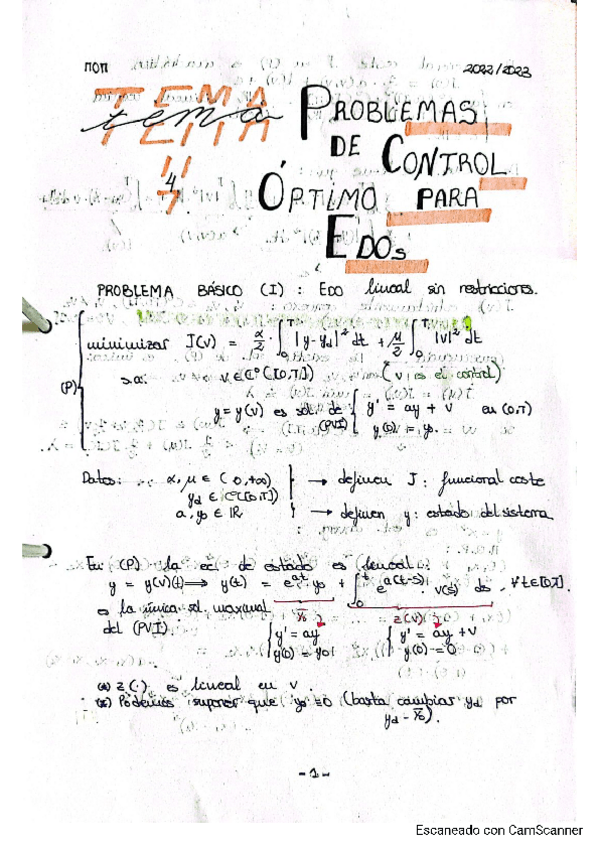 ПОП
2022/2023
TEMA
tema
4
PROBLEMAS
DE CONTROL
ÓPTIMO PARA
EDOs
PROBLEMA BÁSICO (I) : EDO lineal sin restricciones.
(P) { minimizar J(v) = α/2 · ∫₀ᵀ |y-yd|² dt + μ/2 ∫₀ᵀ |v|² dt
s.a: v ∈ C⁰([0,T]) (v es el control)
y = y(v) es sol. de (PVI) { y' = ay + v en (0,T)
y(0) = y₀.
Datos: α, μ ∈ (0,+∞)
yd ∈ C⁰([0,T]) } → definen J : funcional coste
a, y₀ ∈ ℝ } → definen y : estado del sistema
En (P) la ec. de estado es lineal :
y = y(v)(t) ⟹ y(t) = e^{at} y₀ + ∫₀ᵗ e^{a(t-s)} · v(s) ds, ∀t∈[0,T].
es la única sol. maximal
del (PVI).
ȳ₀
z(v)
{ y' = ay
y(0) = y₀
{ y' = ay + v
y(0) = 0
(*) z(·) es lineal en v
(*) Podemos suponer que y₀ ≡ 0 (basta cambiar yd por
yd - ȳ₀).
- 1 -
Escaneado con CamScanner